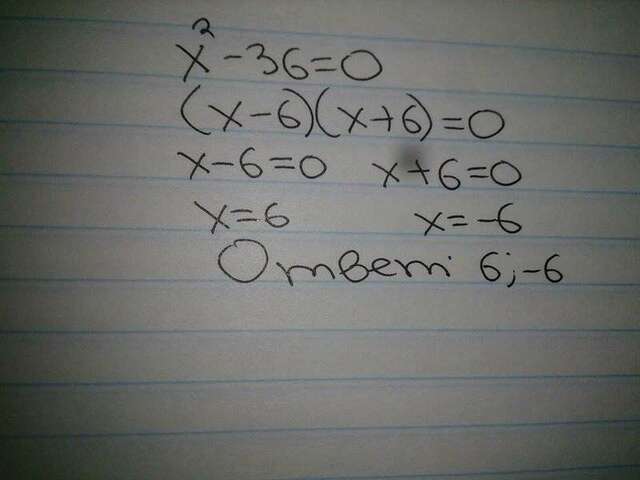 x² - 36 = 0
(x - 6)(x + 6) = 0
x - 6 = 0 x + 6 = 0
x = 6 x = -6
Ответ 6; -6